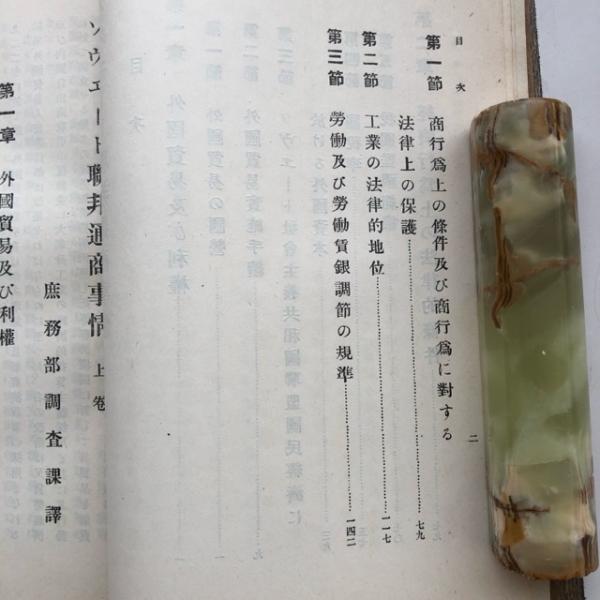 目次
第一節 商行爲上の條件及び商行爲に對する
法律上の保護……七九
第二節 工業の法律的地位……一一七
第三節 勞働及び勞働賃銀調節の規準……一四二
二
ソヴエート聯邦通商事情 上卷
庶務部調査課譯
第一章 外國貿易及び利權